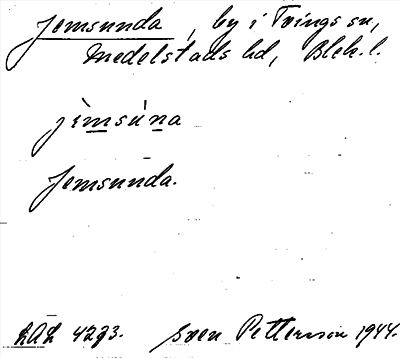 Jemsunda, by i Tvings sn,
Medelstads hd, Blek. l.
jìmsúna
Jemsunda.
LAL 4293. Sven Pettersson 1944.